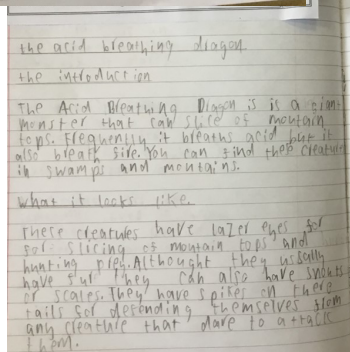 the acid breathing dragon
the introduction
The Acid Breathing Dragon is is a giant
monster that can slice of mountain
tops. Frequently it breaths acid but it
also breath fire. You can find these creature
in swamps and mountains.
What it looks like.
These creatures have lazer eyes for
for slicing of mountain tops and
hunting prey. Althought they usually
have fur they can also have snouts
or scales. They have spikes on there
tails for defending themselves from
any creature that dare to attack
them.